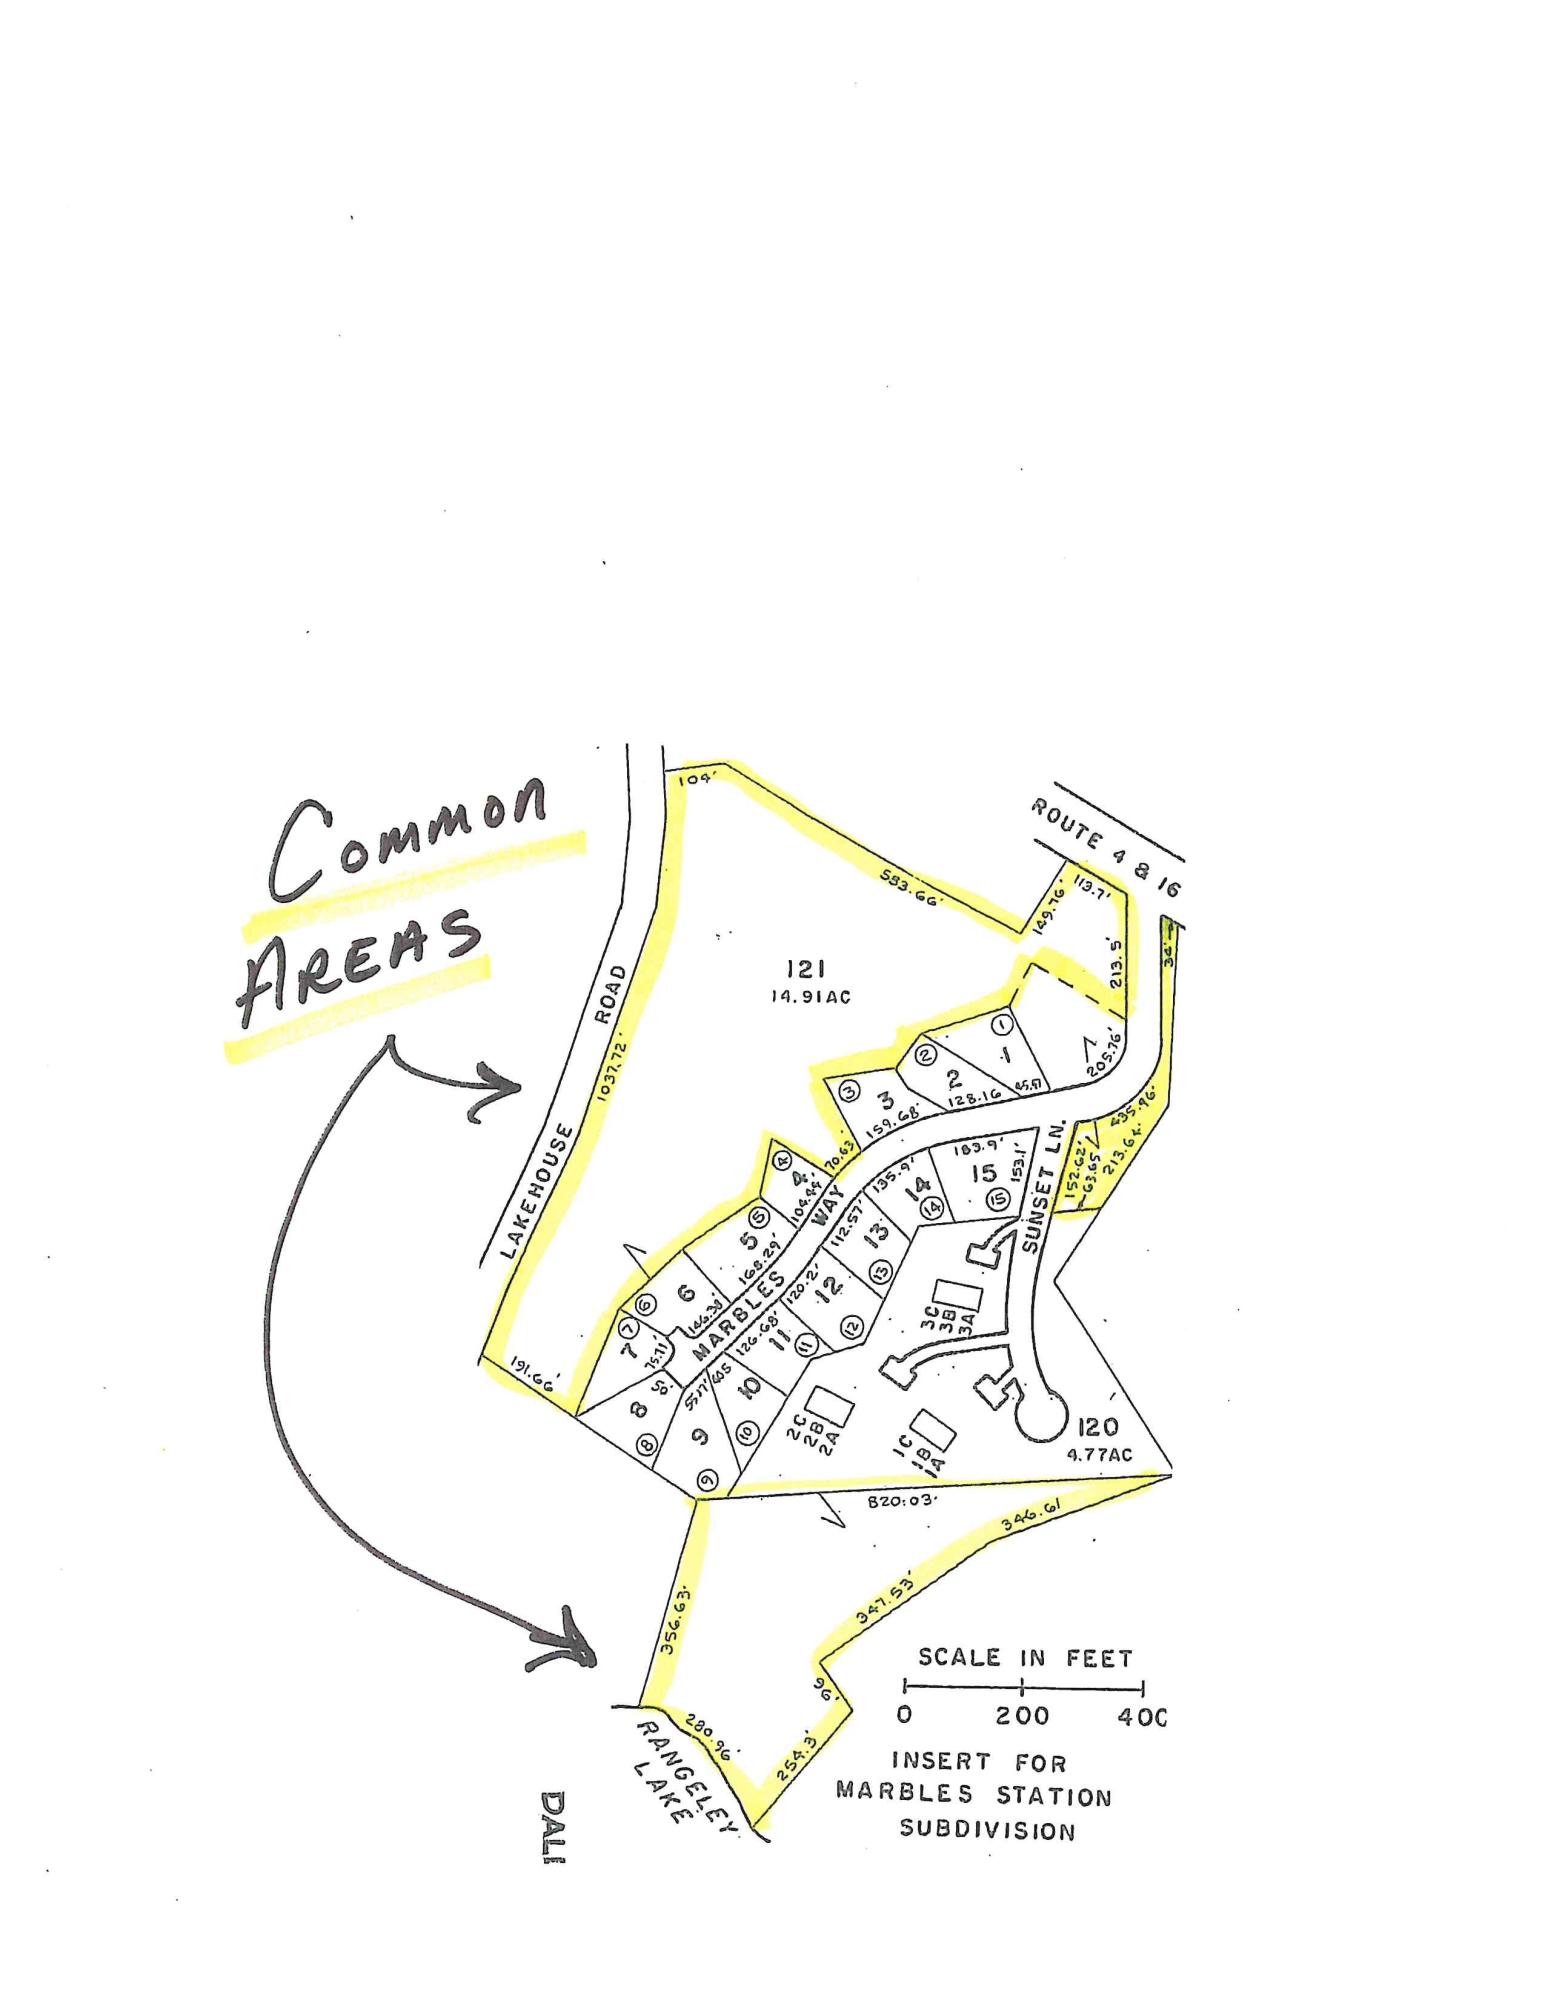 Common
AREAS
104'
583.66'
ROUTE 4 & 16
149.76'
113.7'
213.5'
34'
121
14.91AC
LAKEHOUSE ROAD
1037.72'
1
1
205.76'
2
2
45.57
128.16
3
3
159.68'
435.96'
213.64'
70.63'
4
4
104.44'
183.9'
153.1'
15
15
152.62'
63.65
SUNSET LN.
135.9'
14
14
5
5
168.29'
MARBLES WAY
112.57'
13
13
6
6
146.38'
120.2'
12
12
7
7
75.71'
126.68'
11
11
3C
3B
3A
191.66'
50'
8
8
9
9
10
10
2C
2B
2A
1C
1B
1A
120
4.77AC
820.03'
346.61
356.63'
347.53'
96'
254.3'
280.96'
RANGELEY
LAKE
SCALE IN FEET
0 200 400
INSERT FOR
MARBLES STATION
SUBDIVISION
DALI